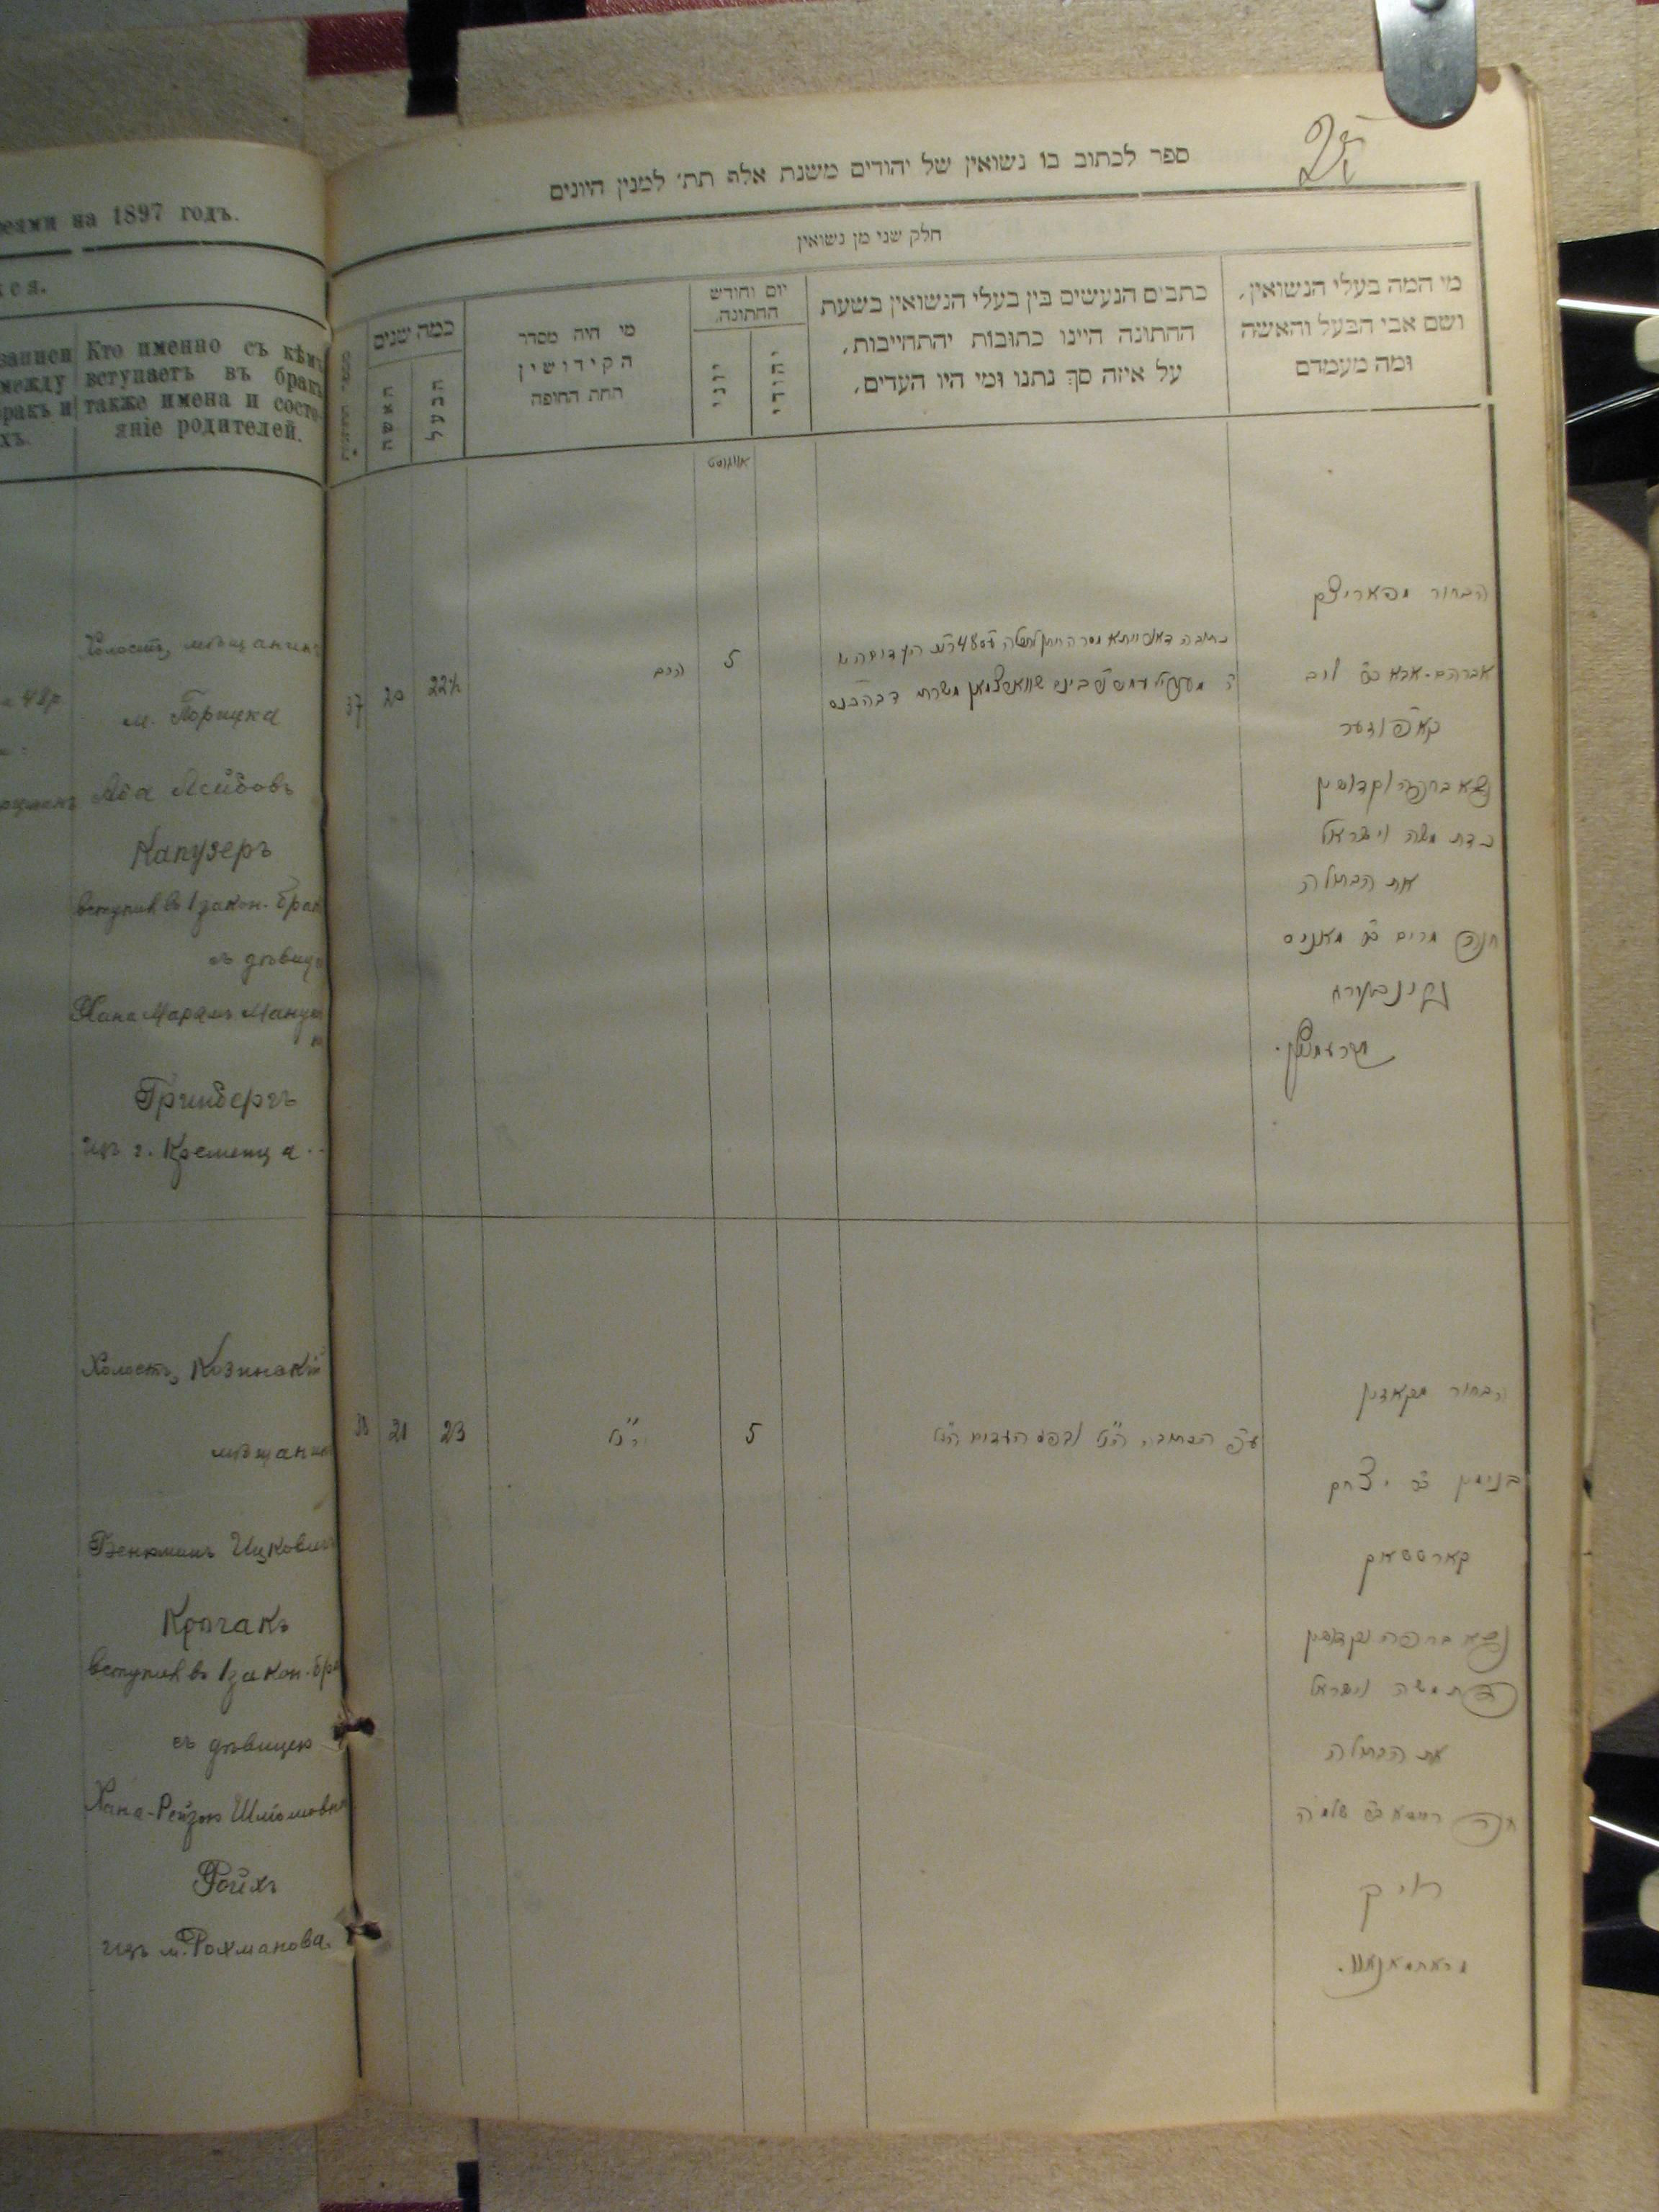 еями на 1897 годъ.
записи
между
бракъ и
хъ.
Кто именно съ кѣмъ
вступаетъ въ бракъ
также имена и состо-
яніе родителей.
Холостъ, мѣщанинъ
м. Порицка
Аба Лейбовъ
Капузеръ
вступил въ 1 закон. брак
съ дѣвице
Хана Марьямъ
Гринбергъ
изъ г. Кременца
Холостъ, Козинскій
мѣщанин
Бенюминъ Ицкович
Корчакъ
вступил въ 1 закон. бра
съ дѣвицею
Хана-Рейзя Шліомовн
Ройхъ
изъ м. Рохманова.
25
ספר לכתוב בו נשואין של יהודים משנת אלף תת׳ למנין היונים
חלק שני מן נשואין
מי המה בעלי הנשואין,
ושם אבי הבעל והאשה
ומה מעמדם
כתבים הנעשים בין בעלי הנשואין בשעת
החתונה היינו כתובות יהתחייבות,
על איזה סך נתנו ומי היו העדים,
יום וחודש
החתונה.
יהודי
יוני
מי היה מסדר
הקידושין
תחת החופה
כמה שנים
הבעל
האשה
אווגוסט
הבחור
אברהם-אבא ב״ר ליב
קאפוזער
נשא בחופה וקדושין
כדת משה וישראל
את הבתולה
חנה מרים ב״ר מאניס
גרינבערג
מקרעמעניץ.
5
הרב
22½
20
37
הבחור מקאזין
בנימין ב״ר יצחק
קארטשאק
נשא בחופה וקדושין
כדת משה וישראל
את הבתולה
חנה רייזא ב״ר שלמה
רויך
מראחמאנאוו.
ע״פ הכתובה הנ״ל ובפני העדים הנ״ל
5
הנ״ל
23
21
38